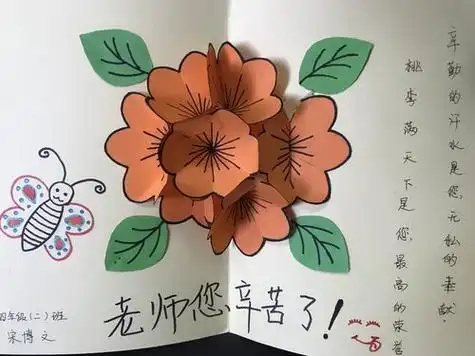 辛勤的汗水是您无私的奉献,
桃李满天下是您最高的荣誉
老师您辛苦了!
四年级(二)班
宋博文